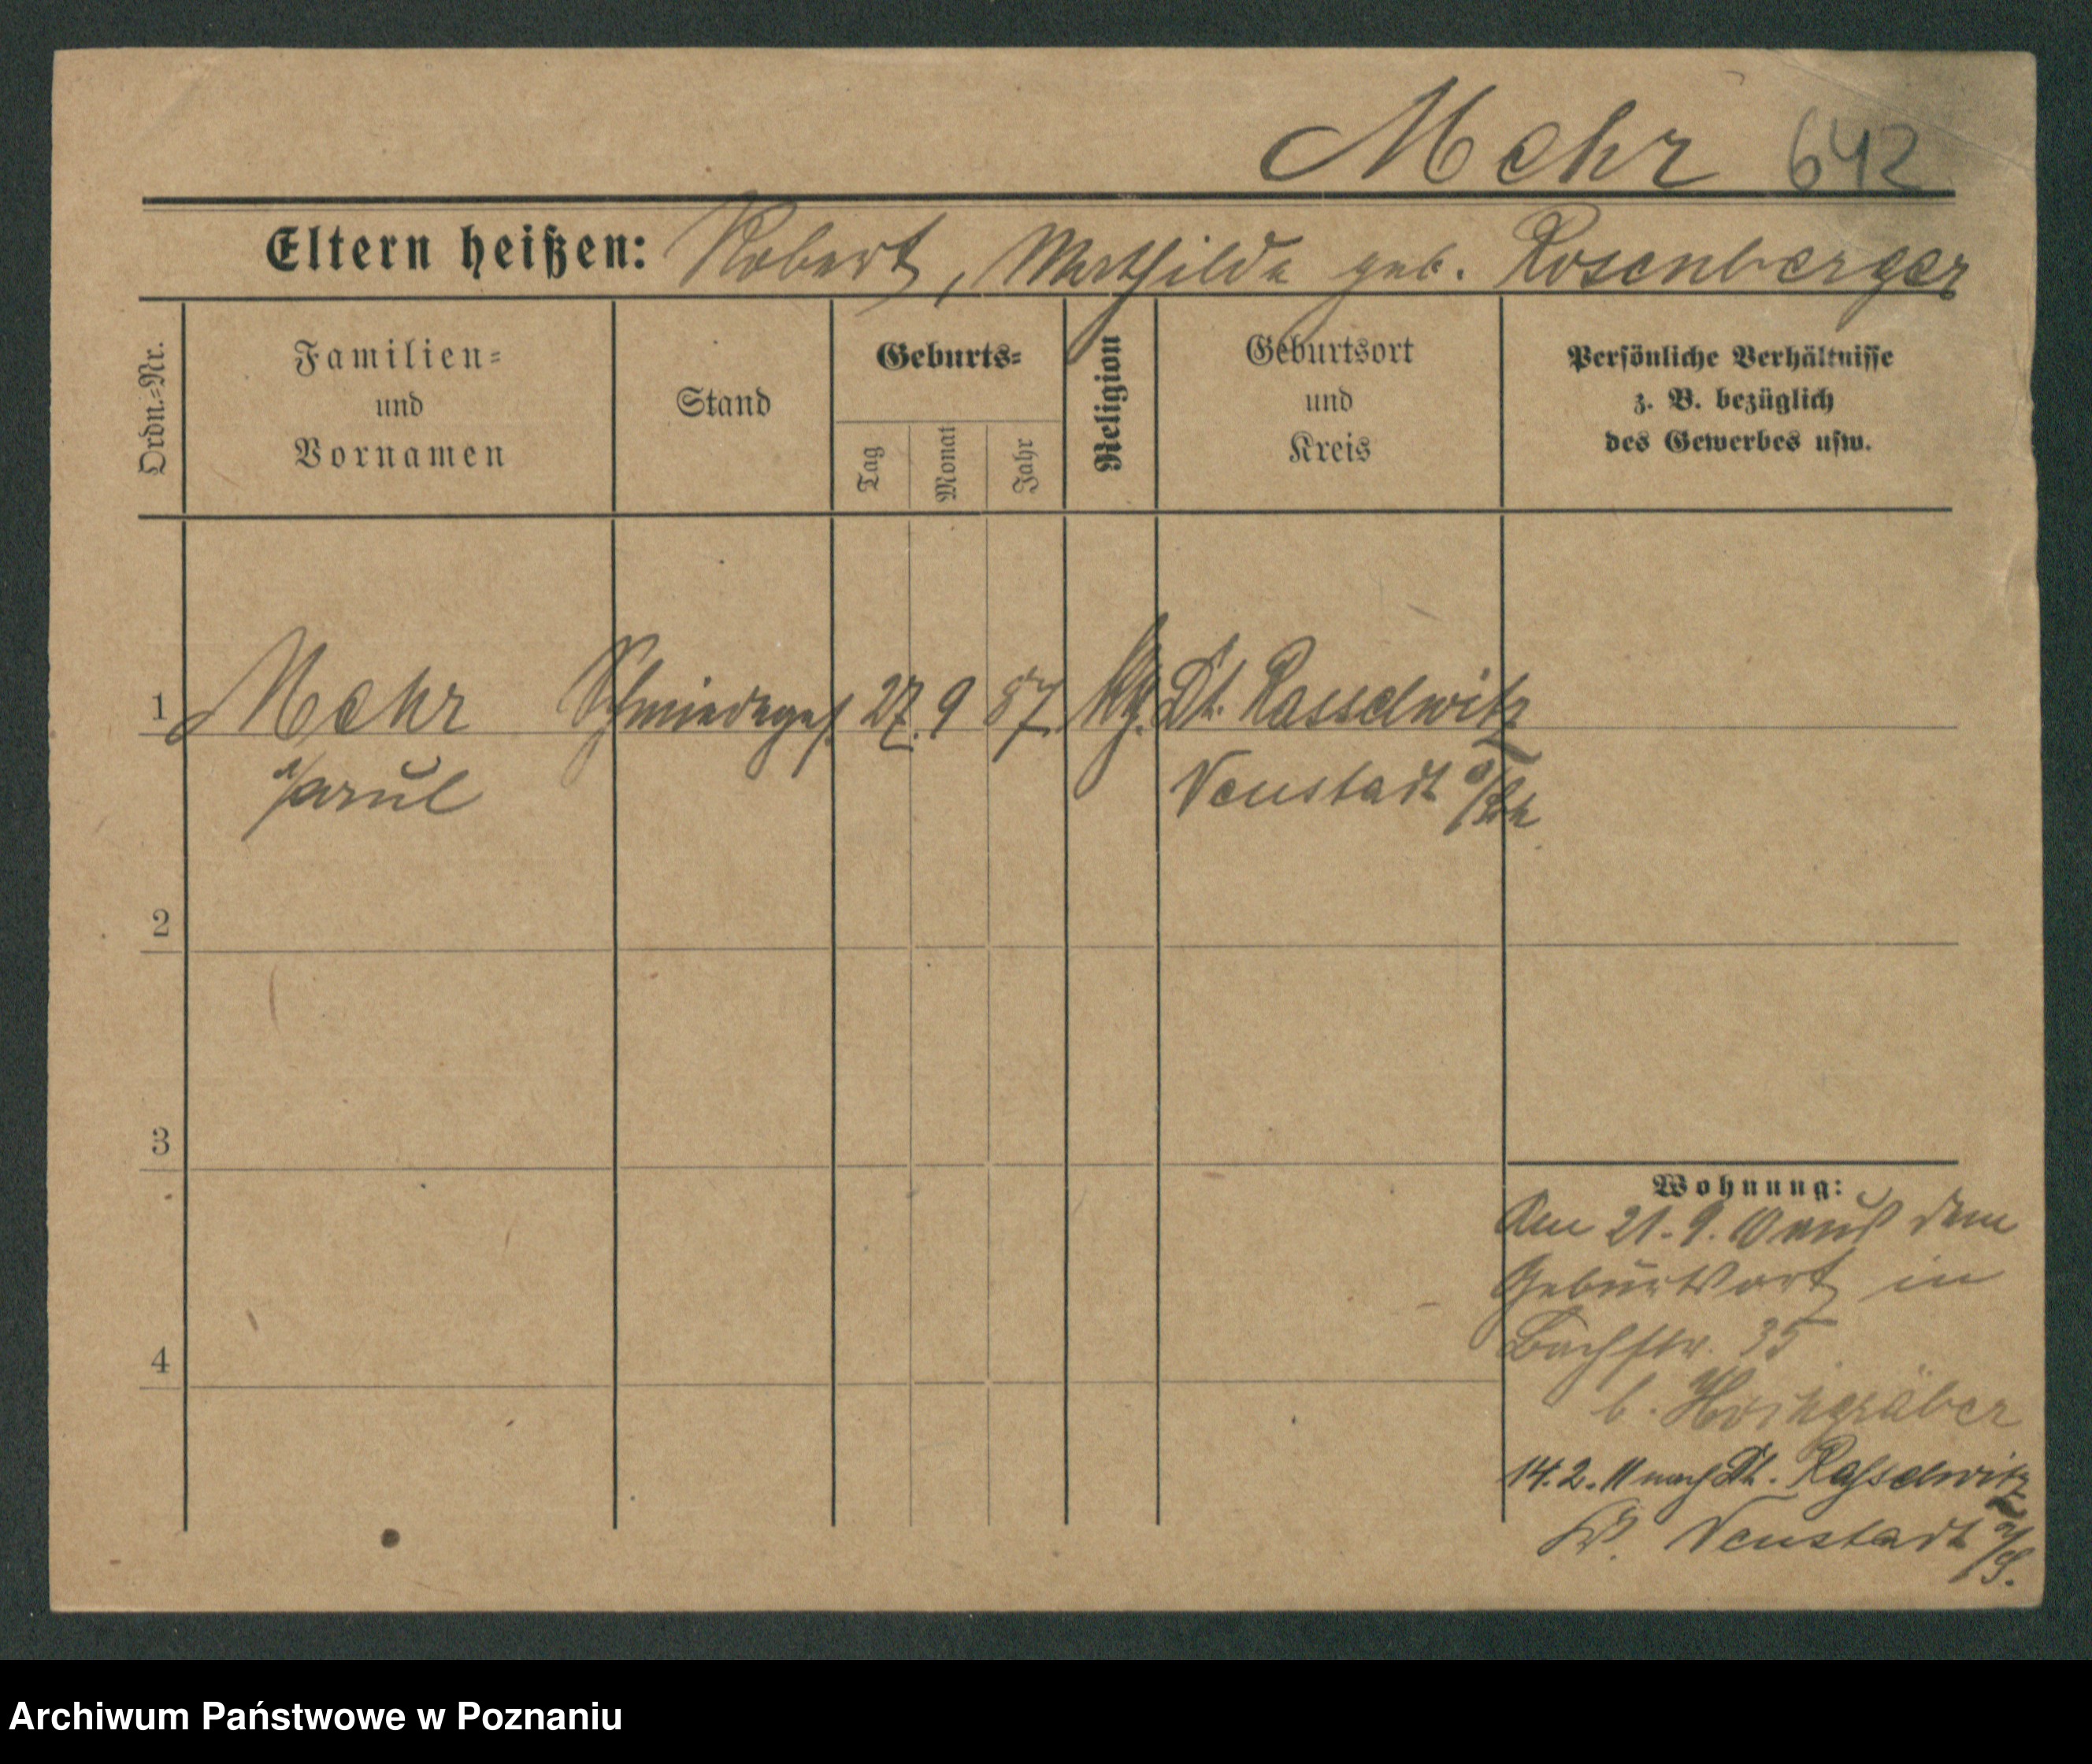 Mehr 642
Eltern heißen: Robert, Mathilde geb. Rosenberger
Ordn.=Nr.
Familien=
und
Vornamen
Stand
Geburts=
Tag
Monat
Jahr
Religion
Geburtsort
und
Kreis
Persönliche Verhältnisse
z. B. bezüglich
des Gewerbes usw.
1 Mehr Schmiedeges. 27. 9 87. Dt. Rasselwitz
Paul Neustadt
2
3
4
Wohnung:
Am 21. 9. 10 aus dem
Geburtsort in
Bachstr. 35
b.
14. 2. 11 nach Dt. Rasselwitz
Kr. Neustadt o/S.
Archiwum Państwowe w Poznaniu